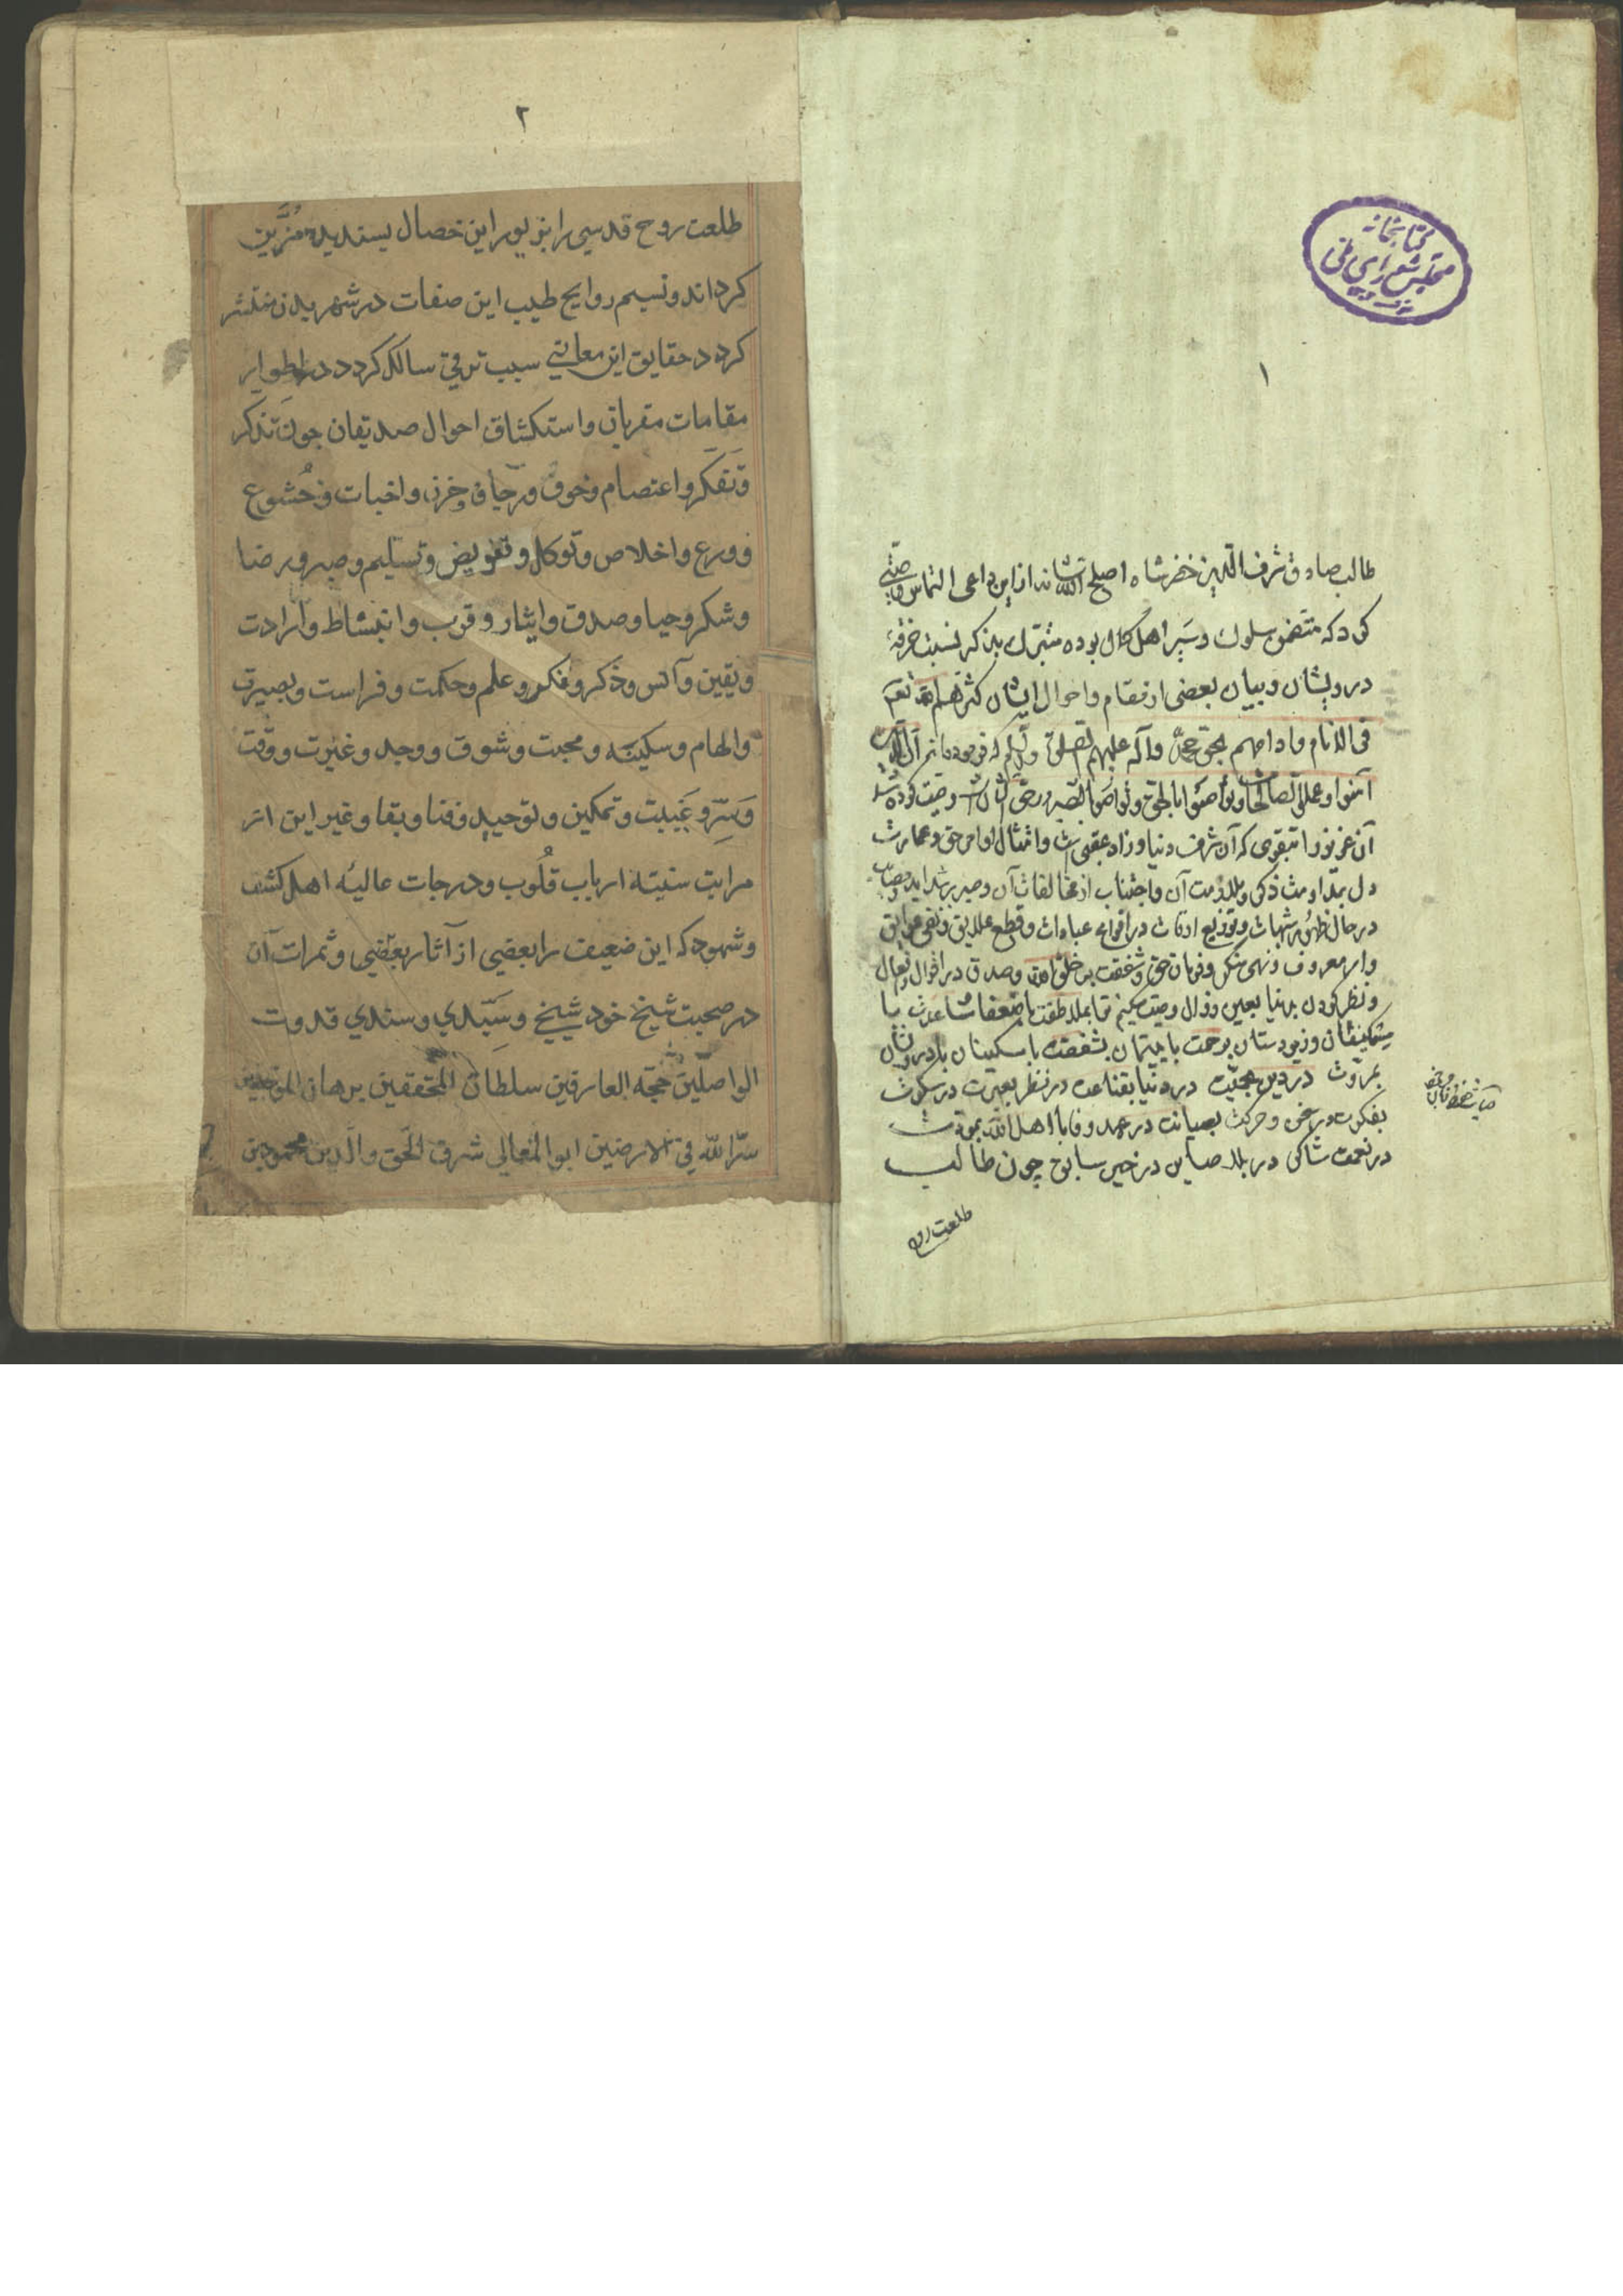 کتابخانه
مجلس شورای ملی
۱
طالب صادق شرف الدین خضرشاه اصلح الله شانه از این داعی التماس وصیتی
کرد که متضمن سلوک و سیر اهل کمال بوده متبرک بذکر نسبت خرقهٔ
درویشان و بیان بعضی از مقام و احوال ایشان کثرهم الله تعم
فی الانام و ادامهم بحق محمد و آله علیهم الصلوة و السلم که فرموده
آمنوا و عملوا الصالحات و تواصوا بالحق و تواصوا بالصبر وصیت کرده شد
آن عزیز را بتقوی که آن شرف دنیا و زاد عقبی است و امتثال اوامر حق و عمارت
دل بمداومت ذکر و ملازمت آن و اجتناب از مخالفات آن و صبر بر شداید و مصایب
در حال ظهور شبهات و توزیع اوقات در انواع عبادات و قطع علایق و نفی عوایق
و امر معروف و نهی منکر و فرمان حق و شفقت بر خلق الله و صدق در اقوال و افعال
و نظر کردن بدنیا بعین زوال وصیت میکنم با ضعفا با
و زیردستان برحمت با یتیمان بشفقت با مسکینان با درویشان
بمروت در دین بمحبت در دنیا بقناعت در نظر بعبرت در سکوت
بفکرت در و حرکت بصیانت در عهد و فا با اهل الله بمودت
در نعمت شاکر در بلا صابر در خیر سابق چون طالب
طلعت روح
۲
طلعت روح قدسی را بزیور این خصال پسندیده مُزَیَّن
کرداند و نسیم روایح طیب این صفات در شهر بدن منتشر
کردد حقایق این معانی سبب ترقی سالک کردد در اطوار
مقامات مقربان و استکشاف احوال صدیقان چون تذکر
و تفکر و اعتصام و خوف و رجا و حزن و اخبات و خُشوع
و ورع و اخلاص و توکل و تفویض و تسلیم و صبر و رضا
و شکر و حیا و صدق و ایثار و قرب و انبساط و ارادت
و یقین و آنس و ذکر و فکر و علم و حکمت و فراست و بصیرت
و الهام و سکینه و محبت و شوق و وجد و غیرت و وقت
وَ سِرّ و غَیبت و تمکین و توحید و فنا و بقا و غیر این از
مراتب سنیّه ارباب قُلوب و درجات عالیه اهل کشف
و شهود که این ضعیف را بعضی از آثار بعضی و ثمرات آن
در صحبت شیخ خود شیخی و سَیِّدي و سندي قدوت
الواصلین حُجّه العارفین سلطان المحققین برهان الموحدین
سرّ اللّه في الارضین ابو المعالي شرف الحق و الدین محمود بن